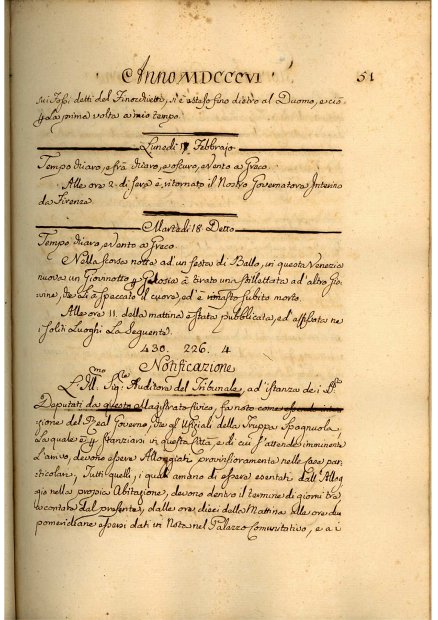 Anno MDCCCVI 51
sui Fossi detti del Rinordietti, si è esteso fino dietro al Duomo, e ciò
p la prima volta a mio tempo.
Lunedì 17 Febbrajo
Tempo chiaro, e frà chiaro, e oscuro, e Vento a Greco
Alle ore 2. di sera è ritornato il Nostro Governatore Interino
da Firenze
Martedì 18 Detto
Tempo chiaro, e Vento a Greco
Nella scorsa notte ad'un festa di Ballo, in questa Venezia
nuova un Giovinotto p Gelosia à tirato una stillettata ad'altro Gio
vine, che li à speccato il cuore, ed'è rimasto subito morto.
Alle ore 11. della mattina è stata pubblicata, ed'affissata ne
i soliti Luoghi La Seguente.
430. 226. 4
Notificazione
L'Ill.mo Sig.re Auditore del Tribunale, ad'istanza dei SS.ri
Deputati da questo Magistrato Civico, fa noto come
zione del Real Governo, che gli Ufiziali della Truppa Spagnuola
La quale è p stanziarsi in questa Città, e di cui s'attende imminente
L'arrivo, devono essere Alloggiati provisionalmente nelle Case par=
ticolari, Tutti quelli, i quali amano di essere esentati dall'Allog
gio nella propria Abitazione, devono dentro il termine di giorni tre
da contarsi dal presente, dalle ore dieci della Mattina alle ore due
pomeridiane essersi dati in Nota nel Palazzo Comunitativo, e a i